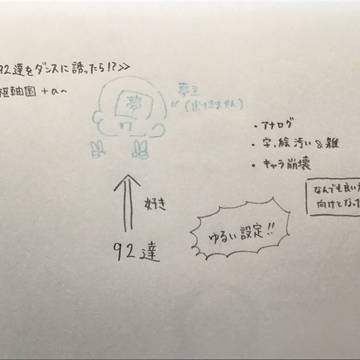 92達をダンスに誘ったら!?>>
枢軸国 +α~
夢
夢主
(出てきません)
・アナログ
・字、絵汚い&雑
・キャラ崩壊
なんでも良い
向けとなっ
好き
ゆるい設定!!
92達